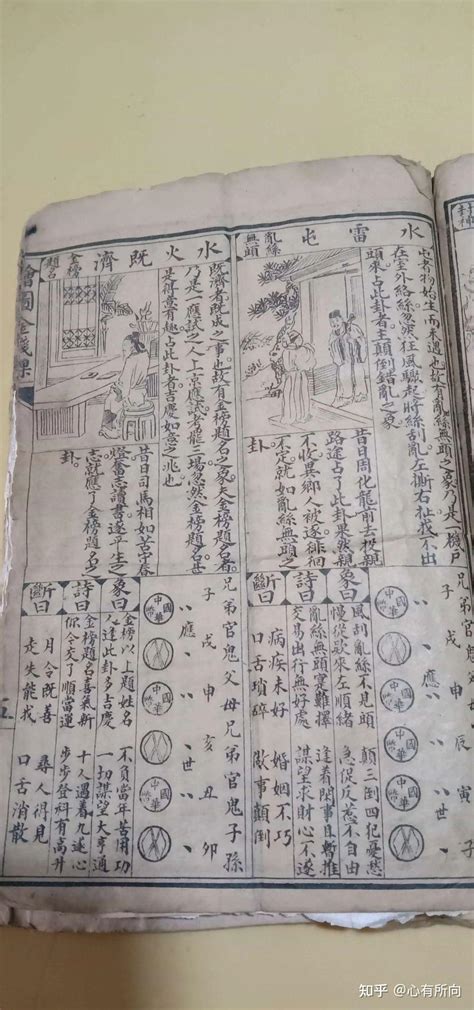 水雷屯
亂絲無頭
屯者物始生而未遇也故有亂絲無頭之象乃是一機戶
在室外絡絲忽突狂風驟起將絲刮亂左撕右扯找不出
頭來占此卦者主顛倒錯亂之象
昔日周化龍前去投親
路途占了此卦果然親
不收異鄉人被逐徘徊
不定就如亂絲無頭之
卦
兄弟官鬼父母兄弟官鬼子孫
子戌申辰寅子
應世
象曰
風刮亂絲不見頭 顛三倒四犯憂愁
慢從款來左順緒 急促反惹不自由
詩曰
亂絲無頭實難擇 逢着閑事且暫推
交易出行無好處 謀望求財心不遂
斷曰
病疾未好 婚姻不巧
口舌瑣碎 做事顛倒
水火既濟
金榜題名
既濟者既成之事也故有金榜題名之象夫金榜題名者
乃是一應試之人上京應試者罷三場忽然金榜題名甚
是得意有趣占此卦者吉慶如意之兆也
昔日司馬相如苦守寒
燈奮志讀書遂平生之
志就應了金榜題名之
卦
兄弟官鬼父母兄弟官鬼子孫
子戌申亥丑卯
應世
象曰
金榜以上題姓名 不負當年苦用功
人逢此卦多吉慶 一切謀望大亨通
詩曰
金榜題名喜氣新 十人遇着九遂心
你今交了順當運 步步登科有高升
斷曰
月令既善 尋人得見
走失能找 口舌消散
繪圖金錢課
五
知乎 @心有所向